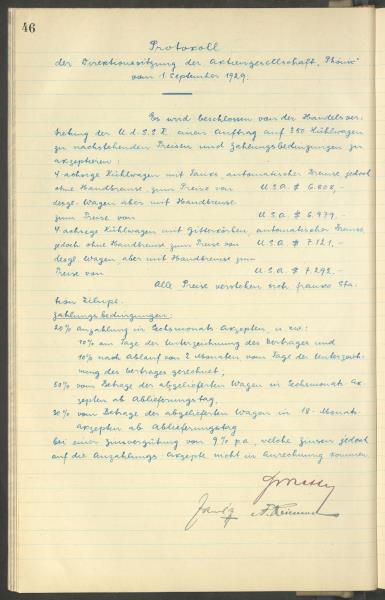 46
Protokoll
der Direktionssitzung der Aktiengesellschaft „Phönix"
vom 1 September 1929.
Es wird beschlossen von der Handelsver-
tretung der U.d.S.S.R. einen Auftrag auf 350 Kühlwagen
zu nachstehenden Preisen und Zahlungsbedingungen zu
akzeptieren:
4 achsige Kühlwagen mit Tanks, automatischer Bremse jedoch
ohne Handbremse zum Preise von U.S.A. $ 6.808,-
desgl. Wagen aber mit Handbremse
zum Preise von U.S.A. $ 6.979,-
4 achsige Kühlwagen mit Gitterkörben, automatischer Bremse,
jedoch ohne Handbremse zum Preise von U.S.A. $ 7.121,-
desgl. Wagen aber mit Handbremse zum
Preise von U.S.A. $ 7.292,-
Alle Preise verstehen sich franko Sta-
tion Zilupe.
Zahlungsbedingungen:
20% Anzahlung in Sechsmonats Akzepten, u. zw.:
10% am Tage der Unterzeichnung des Vertrages und
10% nach Ablauf von 2 Monaten vom Tage der Unterzeich-
nung des Vertrages gerechnet,
50% vom Betrage der abgelieferten Wagen in Sechsmonats-Ak-
zepten ab Ablieferungstag,
30% vom Betrage der abgelieferten Wagen in 18-Monats-
akzepten ab Ablieferungstag
bei einer Zinsvergütung von 9% p.a., welche Zinsen jedoch
auf die Anzahlungs-Akzepte nicht in Anrechnung kommen